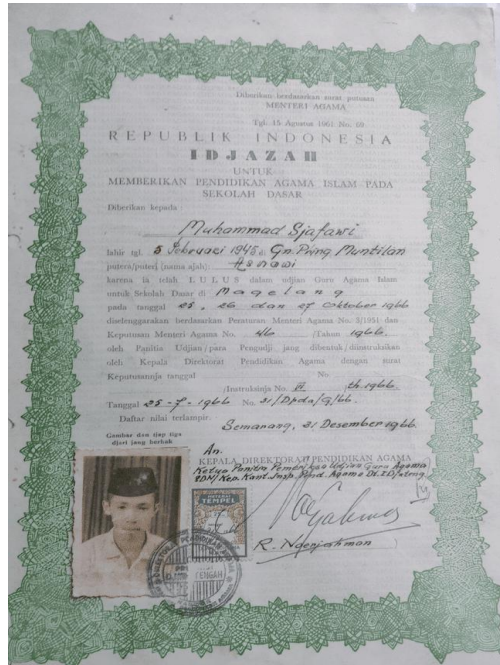 Diberikan berdasarkan surat putusan
MENTERI AGAMA
Tgl. 15 Agustus 1961 No. 69
REPUBLIK INDONESIA
IDJAZAH
UNTUK
MEMBERIKAN PENDIDIKAN AGAMA ISLAM PADA
SEKOLAH DASAR
Diberikan kepada :
Muhammad Sjafawi
lahir tgl. 5 Februari 1945 di Gn. Pring, Muntilan
putera/puterj (nama ajah): Asnawi
karena ia telah LULUS dalam udjian Guru Agama Islam
untuk Sekolah Dasar di Magelang
pada tanggal 25, 26 dan 27 Oktober 1966
diselenggarakan berdasarkan Peraturan Menteri Agama No. 3/1951 dan
Keputusan Menteri Agama No. 46 /Tahun 1966.
oleh Panitia Udjian/para Pengudji jang dibentuk/diinstruksikan
oleh Kepala Direktorat Pendidikan Agama dengan surat
Keputusannja tanggal No.
/Instruksinja No. III th.1966.
Tanggal 25-7-1966 No. 21/Dpda/G/66.
Daftar nilai terlampir.
Semarang, 21 Desember 1966.
Gambar dan tjap tiga
djari jang berhak
An.
KEPALA DIREKTORAT PENDIDIKAN AGAMA
Ketua Panitia Pemeriksa Udjian Guru Agama
TEMPEL
R. Ngerjahman
TENGAH